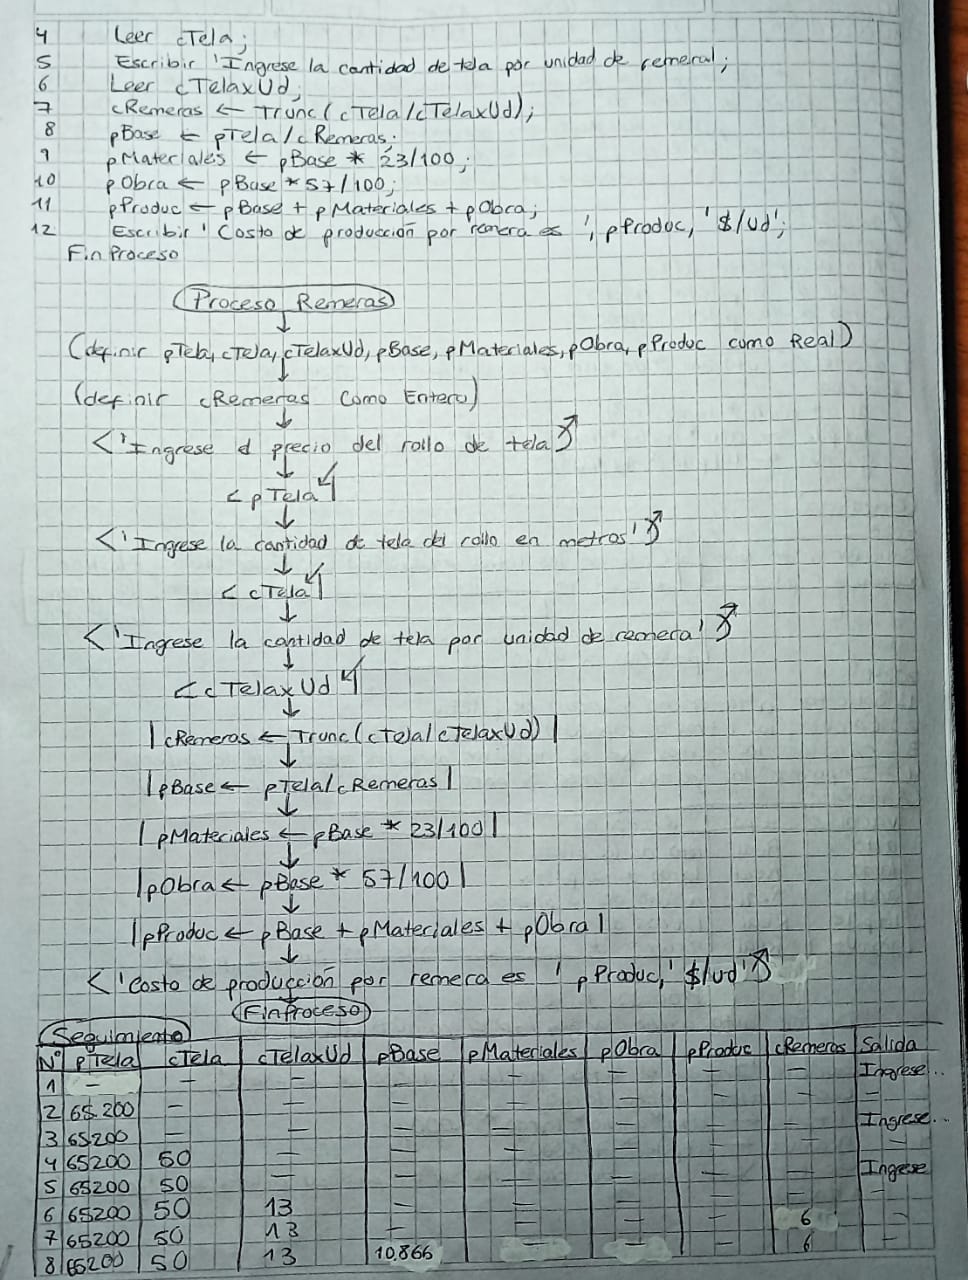 4 Leer cTela;
5 Escribir 'Ingrese la cantidad de tela por unidad de remera';
6 Leer cTelaxUd;
7 cRemeras ← Trunc(cTela/cTelaxUd);
8 pBase ← pTela/cRemeras;
9 pMateriales ← pBase * 23/100;
10 pObra ← pBase * 57/100;
11 pProduc ← pBase + pMateriales + pObra;
12 Escribir 'Costo de producción por remera es ', pProduc, '$/Ud';
FinProceso
Proceso Remeras
(definir pTela, cTela, cTelaxUd, pBase, pMateriales, pObra, pProduc como Real)
(definir cRemeras como Entero)
<'Ingrese el precio del rollo de tela'
<pTela
<'Ingrese la cantidad de tela del rollo en metros'
<cTela
<'Ingrese la cantidad de tela por unidad de remera'
<cTelaxUd
|cRemeras ← Trunc(cTela/cTelaxUd)|
|pBase ← pTela/cRemeras|
|pMateriales ← pBase * 23/100|
|pObra ← pBase * 57/100|
|pProduc ← pBase + pMateriales + pObra|
<'Costo de producción por remera es ' pProduc, '$/ud'
FinProceso
Seguimiento
N° pTela cTela cTelaxUd pBase pMateriales pObra pProduc cRemeras Salida
1 – – – – – – – – Ingrese..
2 65.200 – – – – – – – –
3 65200 – – – – – – – Ingrese...
4 65200 50 – – – – – – –
5 65200 50 – – – – – – Ingrese
6 65200 50 13 – – – – – –
7 65200 50 13 – – – – 6 –
8 65200 50 13 10.866 – – – 6 –